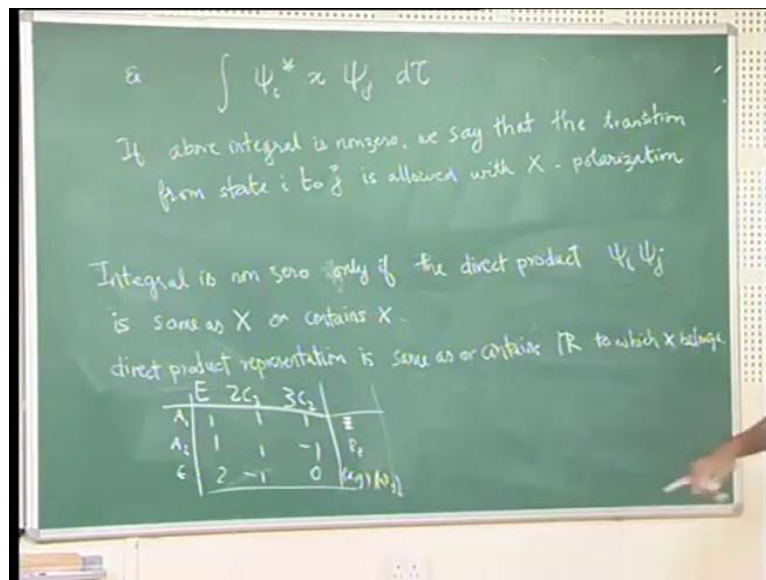 ∫ ψᵢ* x ψⱼ dτ
If above integral is nonzero, we say that the transition
from state i to j is allowed with X - polarization
Integral is non zero only if the direct product ψᵢ ψⱼ
is same as X or contains X.
direct product representation is same as or contains IR to which x belongs
E 2C₃ 3C₂
A₁ 1 1 1 z
A₂ 1 1 -1 R_z
E 2 -1 0